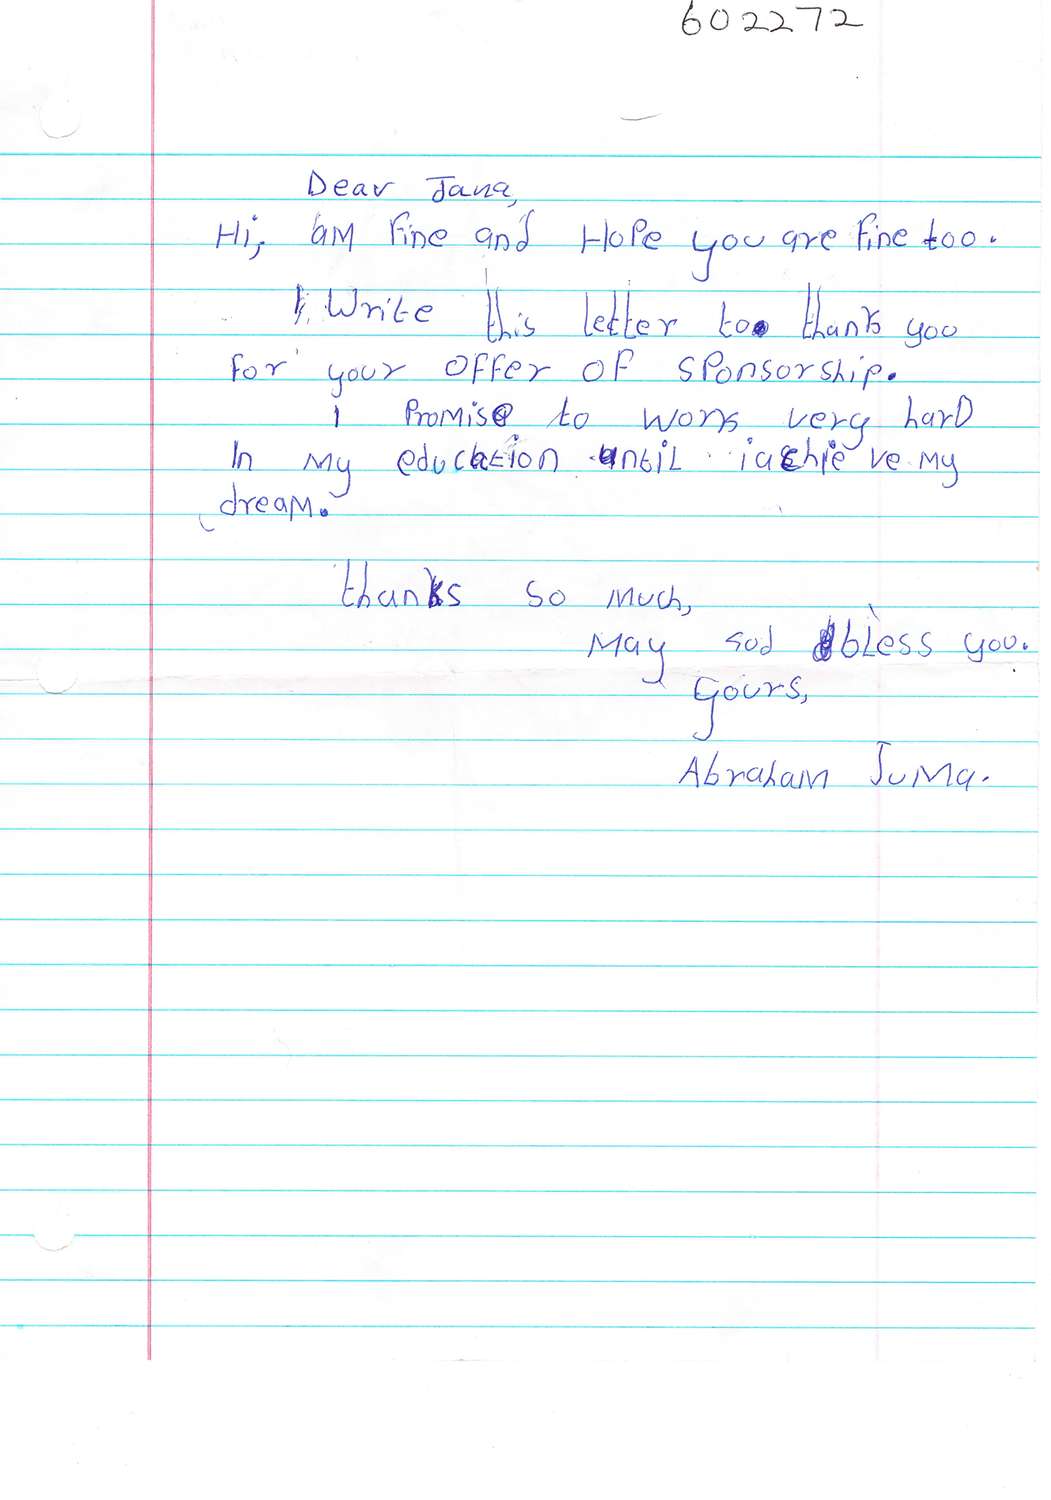 602272
Dear Jana,
Hi, am fine and Hope you are fine too.
I write this letter to thank you
for your offer of sponsorship.
I promise to work very hard
In my education until i achieve my
dream.
thanks so much,
May God bless you.
yours,
Abraham Juma.